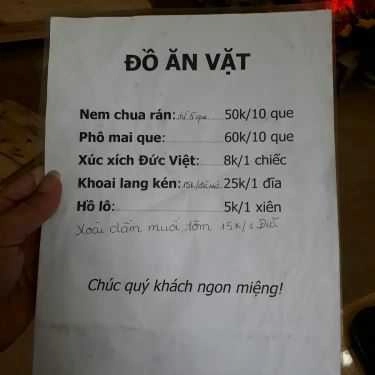 ĐỒ ĂN VẶT
Nem chua rán: 50k/10 que
Phô mai que: 60k/10 que
Xúc xích Đức Việt: 8k/1 chiếc
Khoai lang kén: 25k/1 đĩa
Hồ lô: 5k/1 xiên
Xoài dầm muối tôm 15k/1 Đĩa
Chúc quý khách ngon miệng!